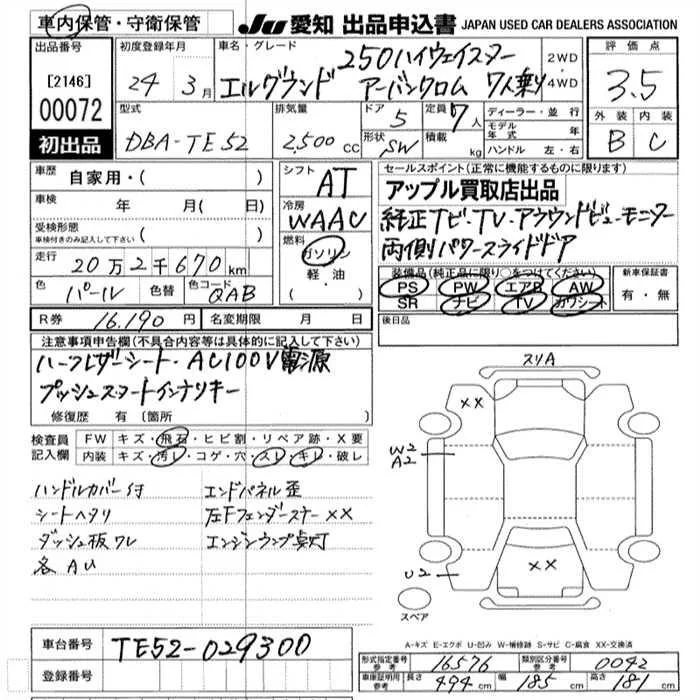 車内保管・守衛保管
JU 愛知 出品申込書 JAPAN USED CAR DEALERS ASSOCIATION
出品番号
[2146]
00072
初出品
初度登録年月
24年 3月
車名・グレード
エルグランド 250ハイウェイスター
アーバンクロム 7人乗り
2WD
・
4WD
評価点
3.5
外装 内装
B C
型式
DBA-TE52
排気量
2,500 CC
ドア
5
形状 SW
定員 7人
積載 kg
ディーラー・並行
モデル年式 年
ハンドル 左・右
車歴 自家用・( )
車検 年 月( 日)
受検形態
車検付きのみ記入して下さい ( )
走行
20万2千670km
色 パール 色替 色コード QAB
R券 16,190円 名変期限 月 日
シフト
AT
冷房
WAAC
燃料
ガソリン
軽・油
・( )
セールスポイント(正常に機能するものに限ります)
アップル買取店出品
純正ナビ・TV・アラウンドビューモニター
両側パワースライドドア
装備品(純正品に限り○をつけてください)
PS PW エアB AW
SR ナビ TV カワシート
新車保証書
有・無
後日品
注意事項申告欄(不具合内容等は具体的に記入して下さい)
ハーフレザーシート・AC100V電源
プッシュスタートインテリキー
修復歴 有〔箇所
検査員記入欄
FW キズ・飛石・ヒビ割・リペア跡・X要
内装 キズ・汚レ・コゲ・穴・スレ・キレ・破レ
ハンドルカバー付 エンドパネル歪
シートヘタリ 左FフェンダーステーXX
ダッシュ板ワレ エンジンランプ点灯
各AU
スリA
XX
W2
A2
XX
U2
スペア
A-キズ E-エクボ U-凹み W-補修跡 S-サビ C-腐食 XX-交換済
車台番号 TE52-029300
登録番号
形式指定番号参考 16576 類別区分番号参考 0042
車庫証明用参考 長さ 494cm 幅 185cm 高さ 181cm